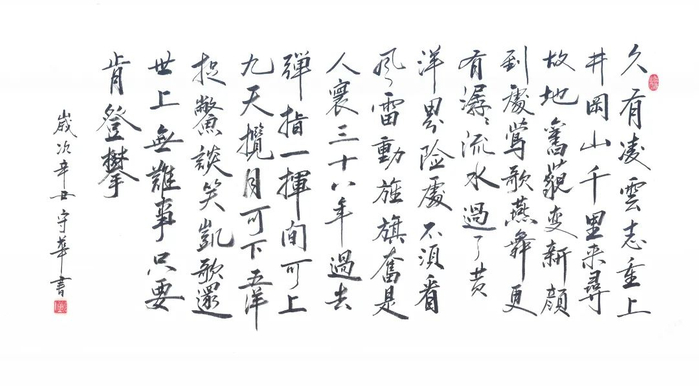 久有凌雲志重上
井岡山千里来尋
故地舊藐变新顔
到處鶯歌燕舞更
有潺々流水過了黄
洋界险處不須看
風雷動旌旗奮是
人寰三十八年過去
彈指一揮间可上
九天攬月可下五洋
捉鱉談笑凱歌還
世上無難事只要
肯登攀
歲次辛丑守華書